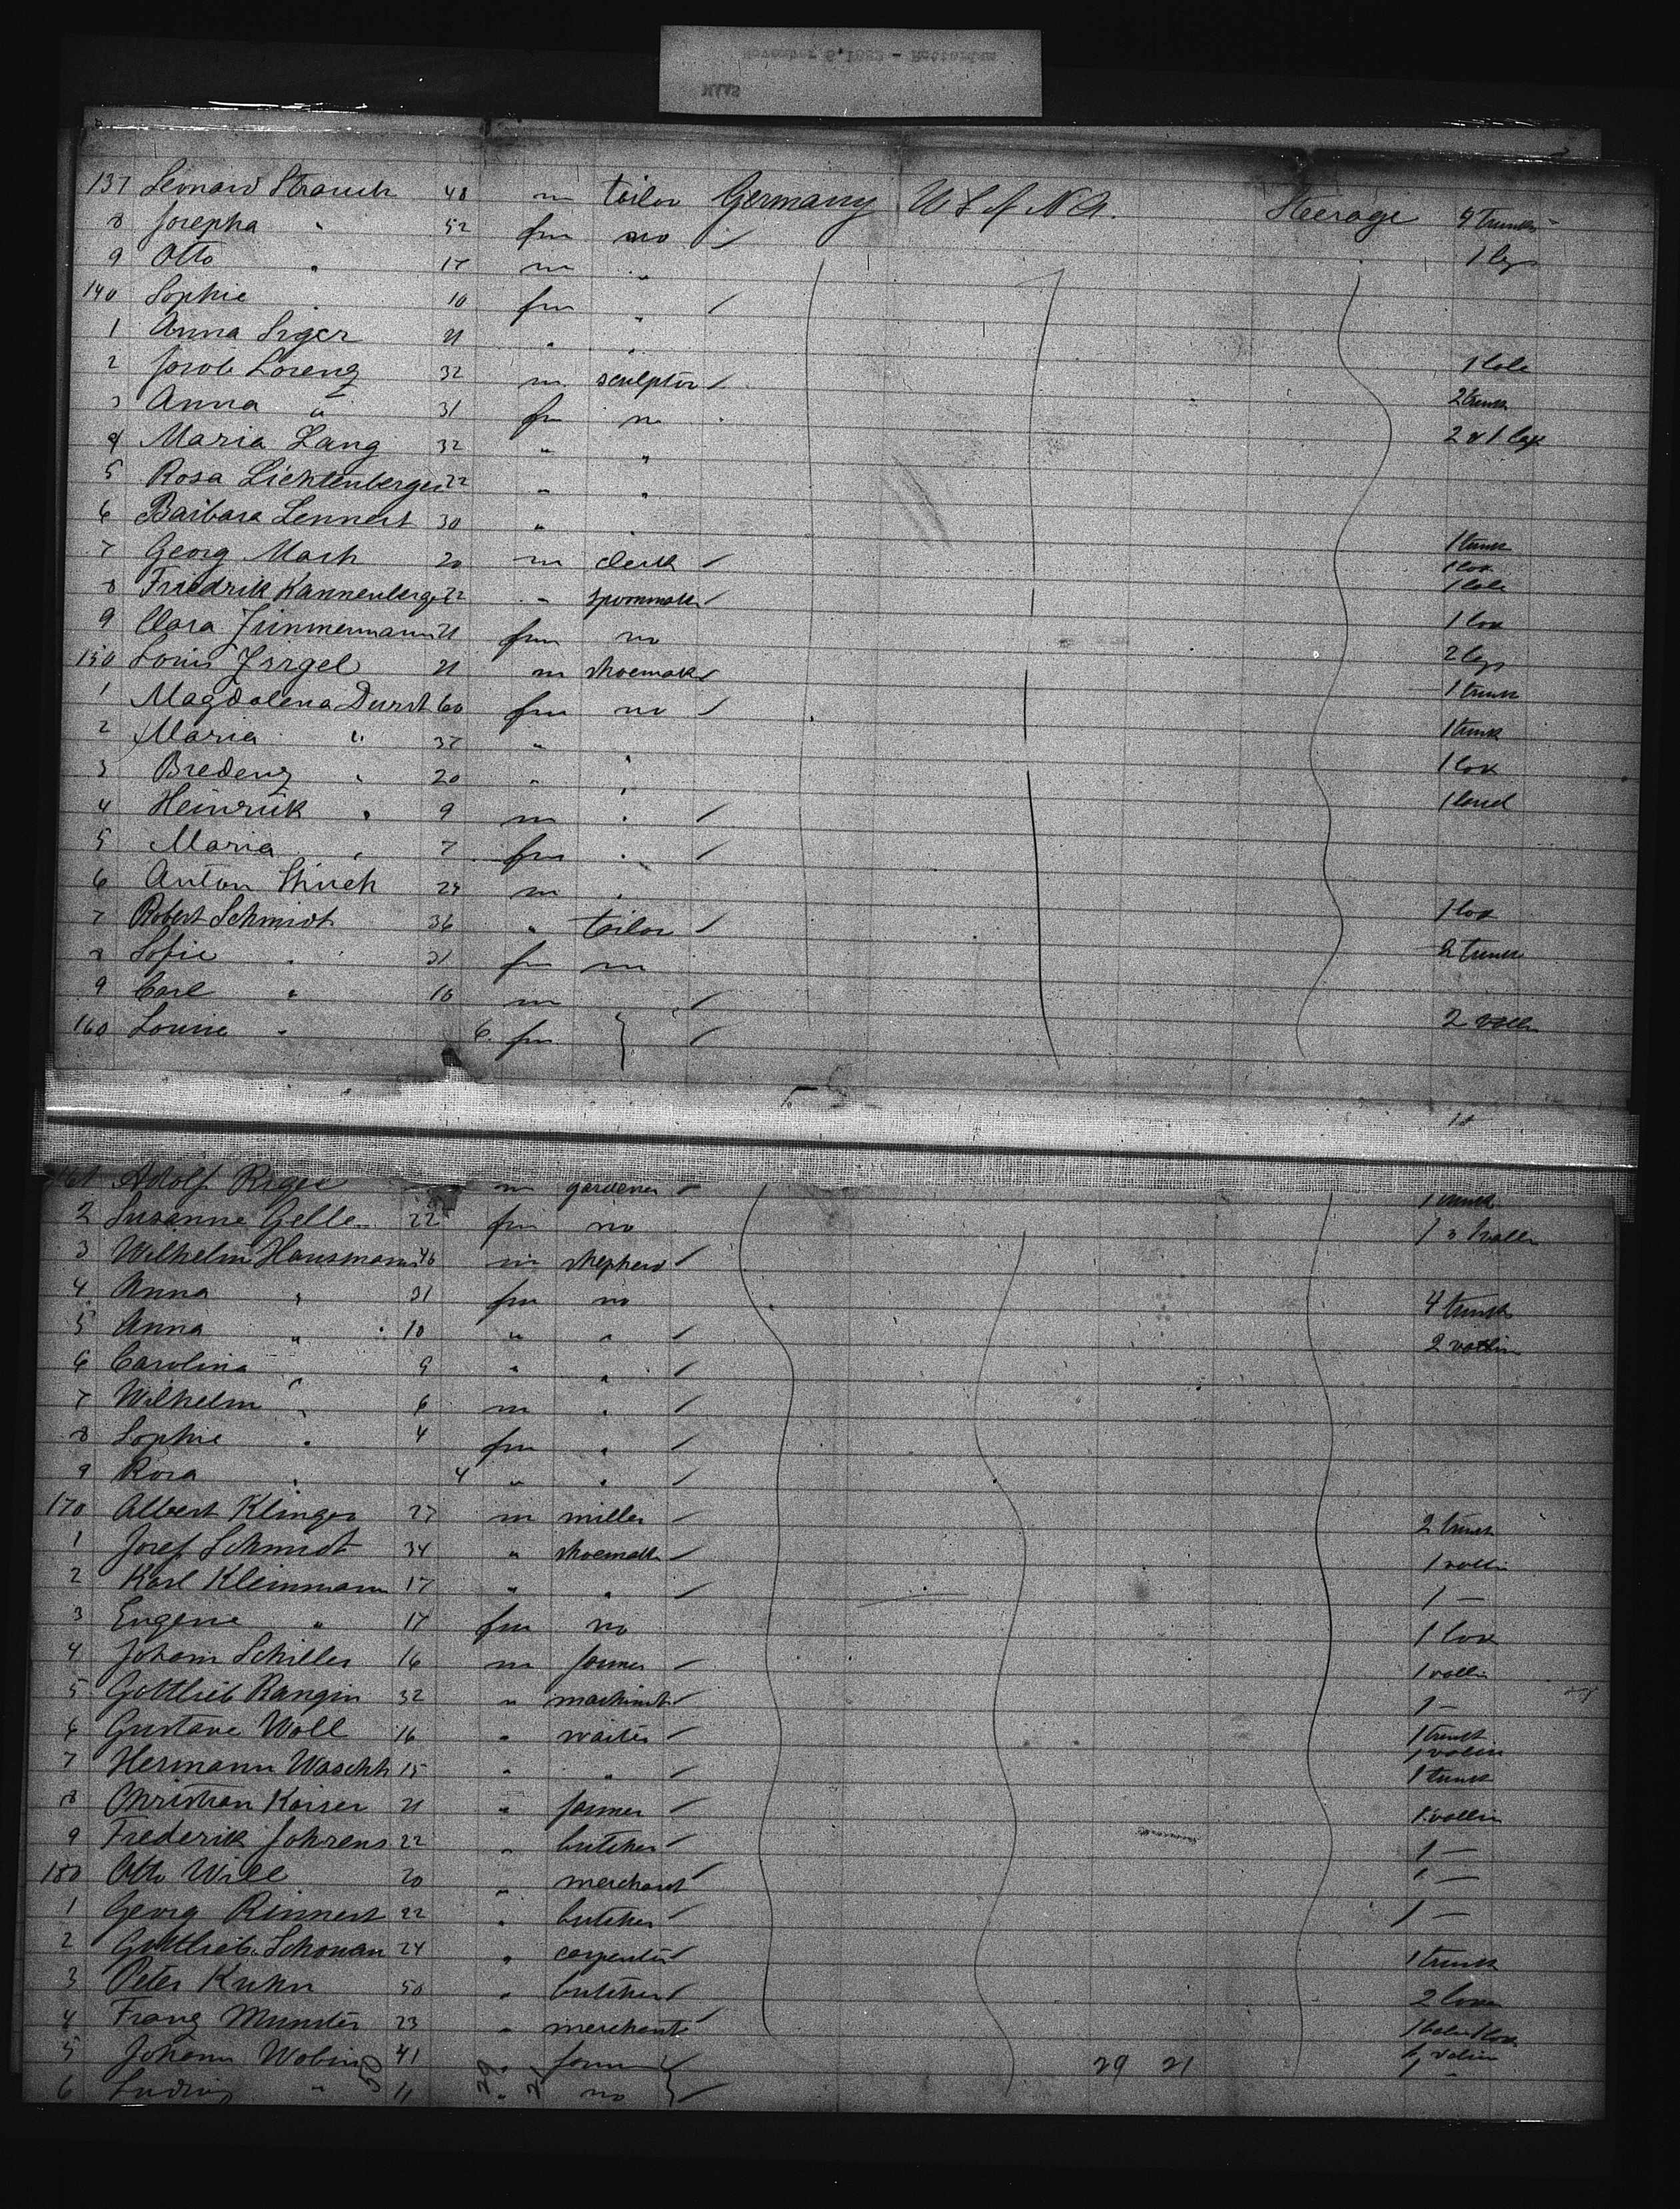 November 6, 1882 - Rotterdam
MAAS
137 Leonard Strauch 48 m tailor Germany U S of N A. Steerage 4 trunks
8 Josepha " 52 fm no 1 bg
9 Otto " 17 m "
140 Sophie " 10 fm "
1 Anna Siger 21 " "
2 Jacob Lorenz 32 m sculptor 1 bale
3 Anna " 31 fm no 2 trunk
4 Maria Lang 32 " " 2 & 1 bags
5 Rosa Lichtenberger 22 " "
6 Barbara Lennert 30 "
7 Georg Mach 20 m clerk 1 trunk 1 box
8 Friedrik Kannenberg 22 " 1 bale
9 Clara Zimmermann 21 fm no 1 box
150 Louis 21 m shoemak 2 bgs
1 Magdalena Durst 60 fm no 1 trunk
2 Maria " 37 " " 1 trunk
3 Bredenz " 20 " " 1 box
4 Heinrik " 9 m "
5 Maria " 7 fm "
6 Anton 24 m "
7 Robert Schmidt 36 " tailor 1 box
8 Sofie " 31 fm no 2 trunk
9 Carl " 10 m
160 Louise " 6 fm 2 vallis
10
161 Adolf m gardener 1 trunk
2 Susanne Gelle 22 fm no
3 Wilhelm Hausmann 46 m shepherd
4 Anna " 31 fm no 4 trunks
5 Anna " 10 " " 2 vallis
6 Carolina " 9 " "
7 Wilhelm " 6 m "
8 Sophie " 4 fm "
9 Rosa " 4 " "
170 Albert Klinger 27 m miller 2 trunk
1 Josef Schmidt 34 " shoemak 1 vallis
2 Karl Kleinmann 17 " " 1 —
3 Eugenie " 17 fm no 1 box
4 Johann Schiller 16 m farmer 1 vallis
5 Gottlieb Rangin 32 " machinist 1 —
6 Gustave Woll 16 " waiter 1 trunk 1 vallis
7 Hermann 15 " " 1 trunk
8 Christian Kaiser 21 " farmer 1 vallis
9 Frederik Johrens 22 " butcher 1 —
180 Otto Will 20 " merchant 1 —
1 Georg Rinnert 22 " butcher 1 —
2 Gottlieb Schonan 24 " carpenter 1 trunk
3 Peter Kuhn 50 " butcher 2 boxes
4 Franz Munster 23 " merchant 1 bale 1 box
5 Johann Wobin 41 " farm 29 21
6 Ludwig " 11 " no
50 29 21